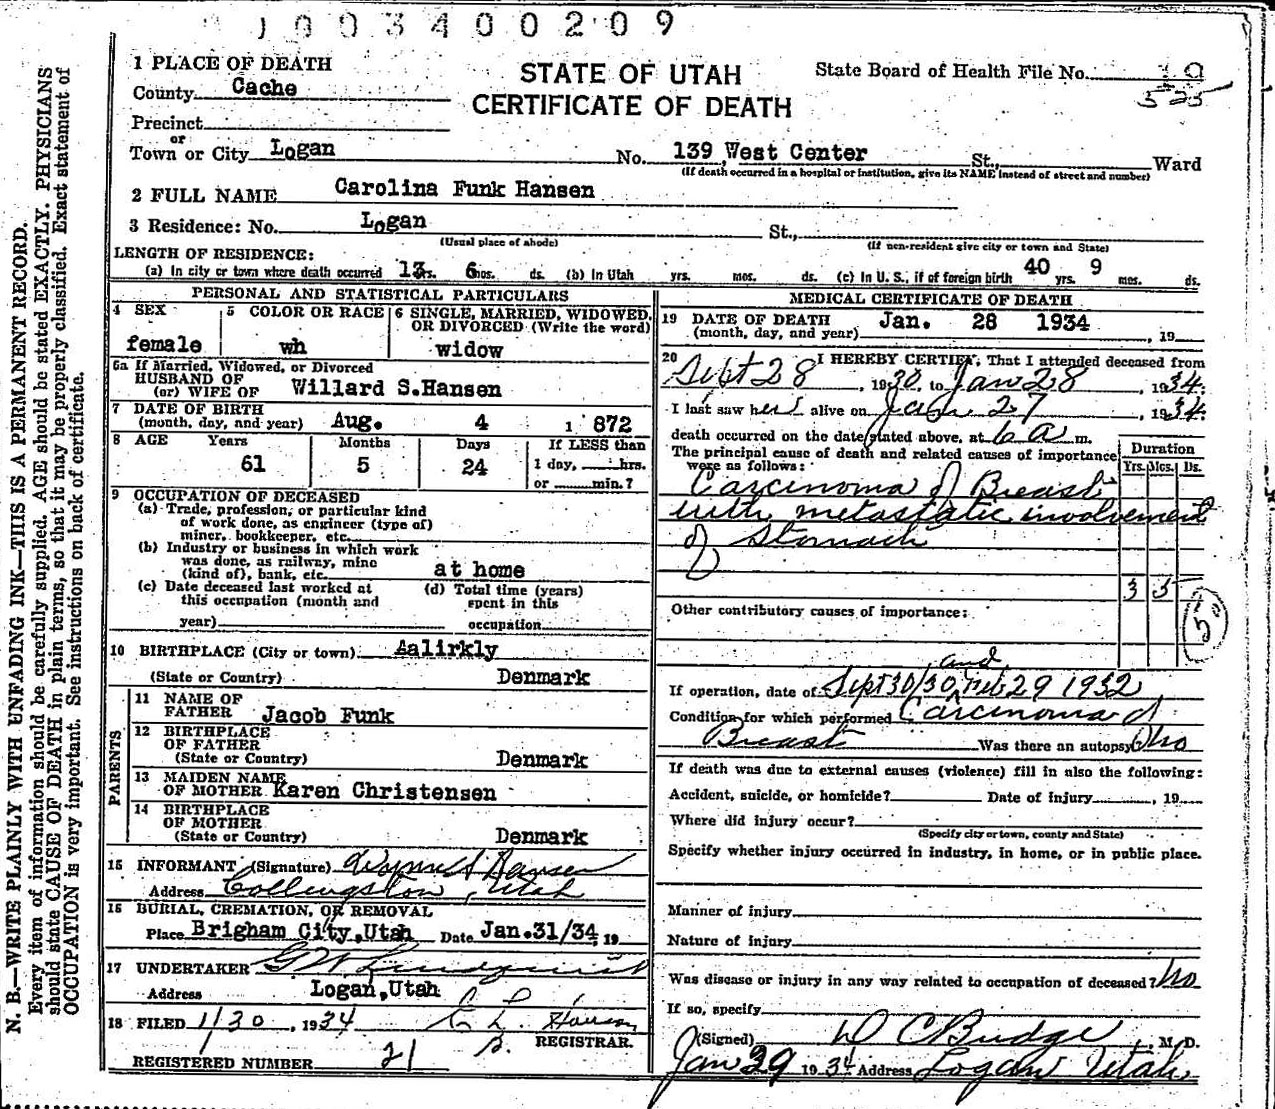 1003400209
STATE OF UTAH
CERTIFICATE OF DEATH
State Board of Health File No. 19
525
1 PLACE OF DEATH
County Cache
Precinct
or
Town or City Logan No. 139 West Center St., Ward
(If death occurred in a hospital or institution, give its NAME instead of street and number)
2 FULL NAME Carolina Funk Hansen
3 Residence: No. Logan St.,
(Usual place of abode) (If non-resident give city or town and State)
LENGTH OF RESIDENCE:
(a) In city or town where death occurred 13 yrs. 6 mos. ds. (b) In Utah yrs. mos. ds. (c) In U. S., if of foreign birth 40 yrs. 9 mos. ds.
PERSONAL AND STATISTICAL PARTICULARS
4 SEX 5 COLOR OR RACE 6 SINGLE, MARRIED, WIDOWED, OR DIVORCED (Write the word)
female wh widow
6a If Married, Widowed, or Divorced
HUSBAND OF
(or) WIFE OF Willard S.Hansen
7 DATE OF BIRTH
(month, day, and year) Aug. 4 1872
8 AGE Years Months Days If LESS than
61 5 24 1 day, hrs.
or min.?
9 OCCUPATION OF DECEASED
(a) Trade, profession, or particular kind
of work done, as engineer (type of)
miner, bookkeeper, etc.
(b) Industry or business in which work
was done, as railway, mine
(kind of), bank, etc. at home
(c) Date deceased last worked at (d) Total time (years)
this occupation (month and spent in this
year) occupation
10 BIRTHPLACE (City or town) Aalirkly
(State or Country) Denmark
PARENTS
11 NAME OF
FATHER Jacob Funk
12 BIRTHPLACE
OF FATHER
(State or Country) Denmark
13 MAIDEN NAME
OF MOTHER Karen Christensen
14 BIRTHPLACE
OF MOTHER
(State or Country) Denmark
15 INFORMANT (Signature) Hansen
Address Collingston, Utah
16 BURIAL, CREMATION, OR REMOVAL
Place Brigham City,Utah Date Jan.31/34, 19
17 UNDERTAKER G W Lindquist
Address Logan,Utah
18 FILED 1/30, 1934 Hansen
REGISTRAR.
REGISTERED NUMBER 21
MEDICAL CERTIFICATE OF DEATH
19 DATE OF DEATH
(month, day, and year) Jan. 28 1934, 19
20 I HEREBY CERTIFY, That I attended deceased from
Sept 28, 1930, to Jan 28, 1934.
I last saw her alive on Jan 27, 1934.
death occurred on the date stated above, at 6 a m.
The principal cause of death and related causes of importance
were as follows:
Duration
Yrs. Mos. Ds.
Carcinoma of Breast
with metastatic involvement
of Stomach
3 5
50
Other contributory causes of importance:
and
If operation, date of Sept 30/30, Feb 29 1932
Condition for which performed Carcinoma of
Breast Was there an autopsy? no
If death was due to external causes (violence) fill in also the following:
Accident, suicide, or homicide? Date of injury, 19
Where did injury occur?
(Specify city or town, county and State)
Specify whether injury occurred in industry, in home, or in public place.
Manner of injury
Nature of injury
Was disease or injury in any way related to occupation of deceased? no
If so, specify
(Signed) D C Budge, M. D.
Jan 29 1934 Address Logan Utah
N. B.—WRITE PLAINLY WITH UNFADING INK—THIS IS A PERMANENT RECORD.
Every item of information should be carefully supplied. AGE should be stated EXACTLY. PHYSICIANS
should state CAUSE OF DEATH in plain terms, so that it may be properly classified. Exact statement of
OCCUPATION is very important. See instructions on back of certificate.